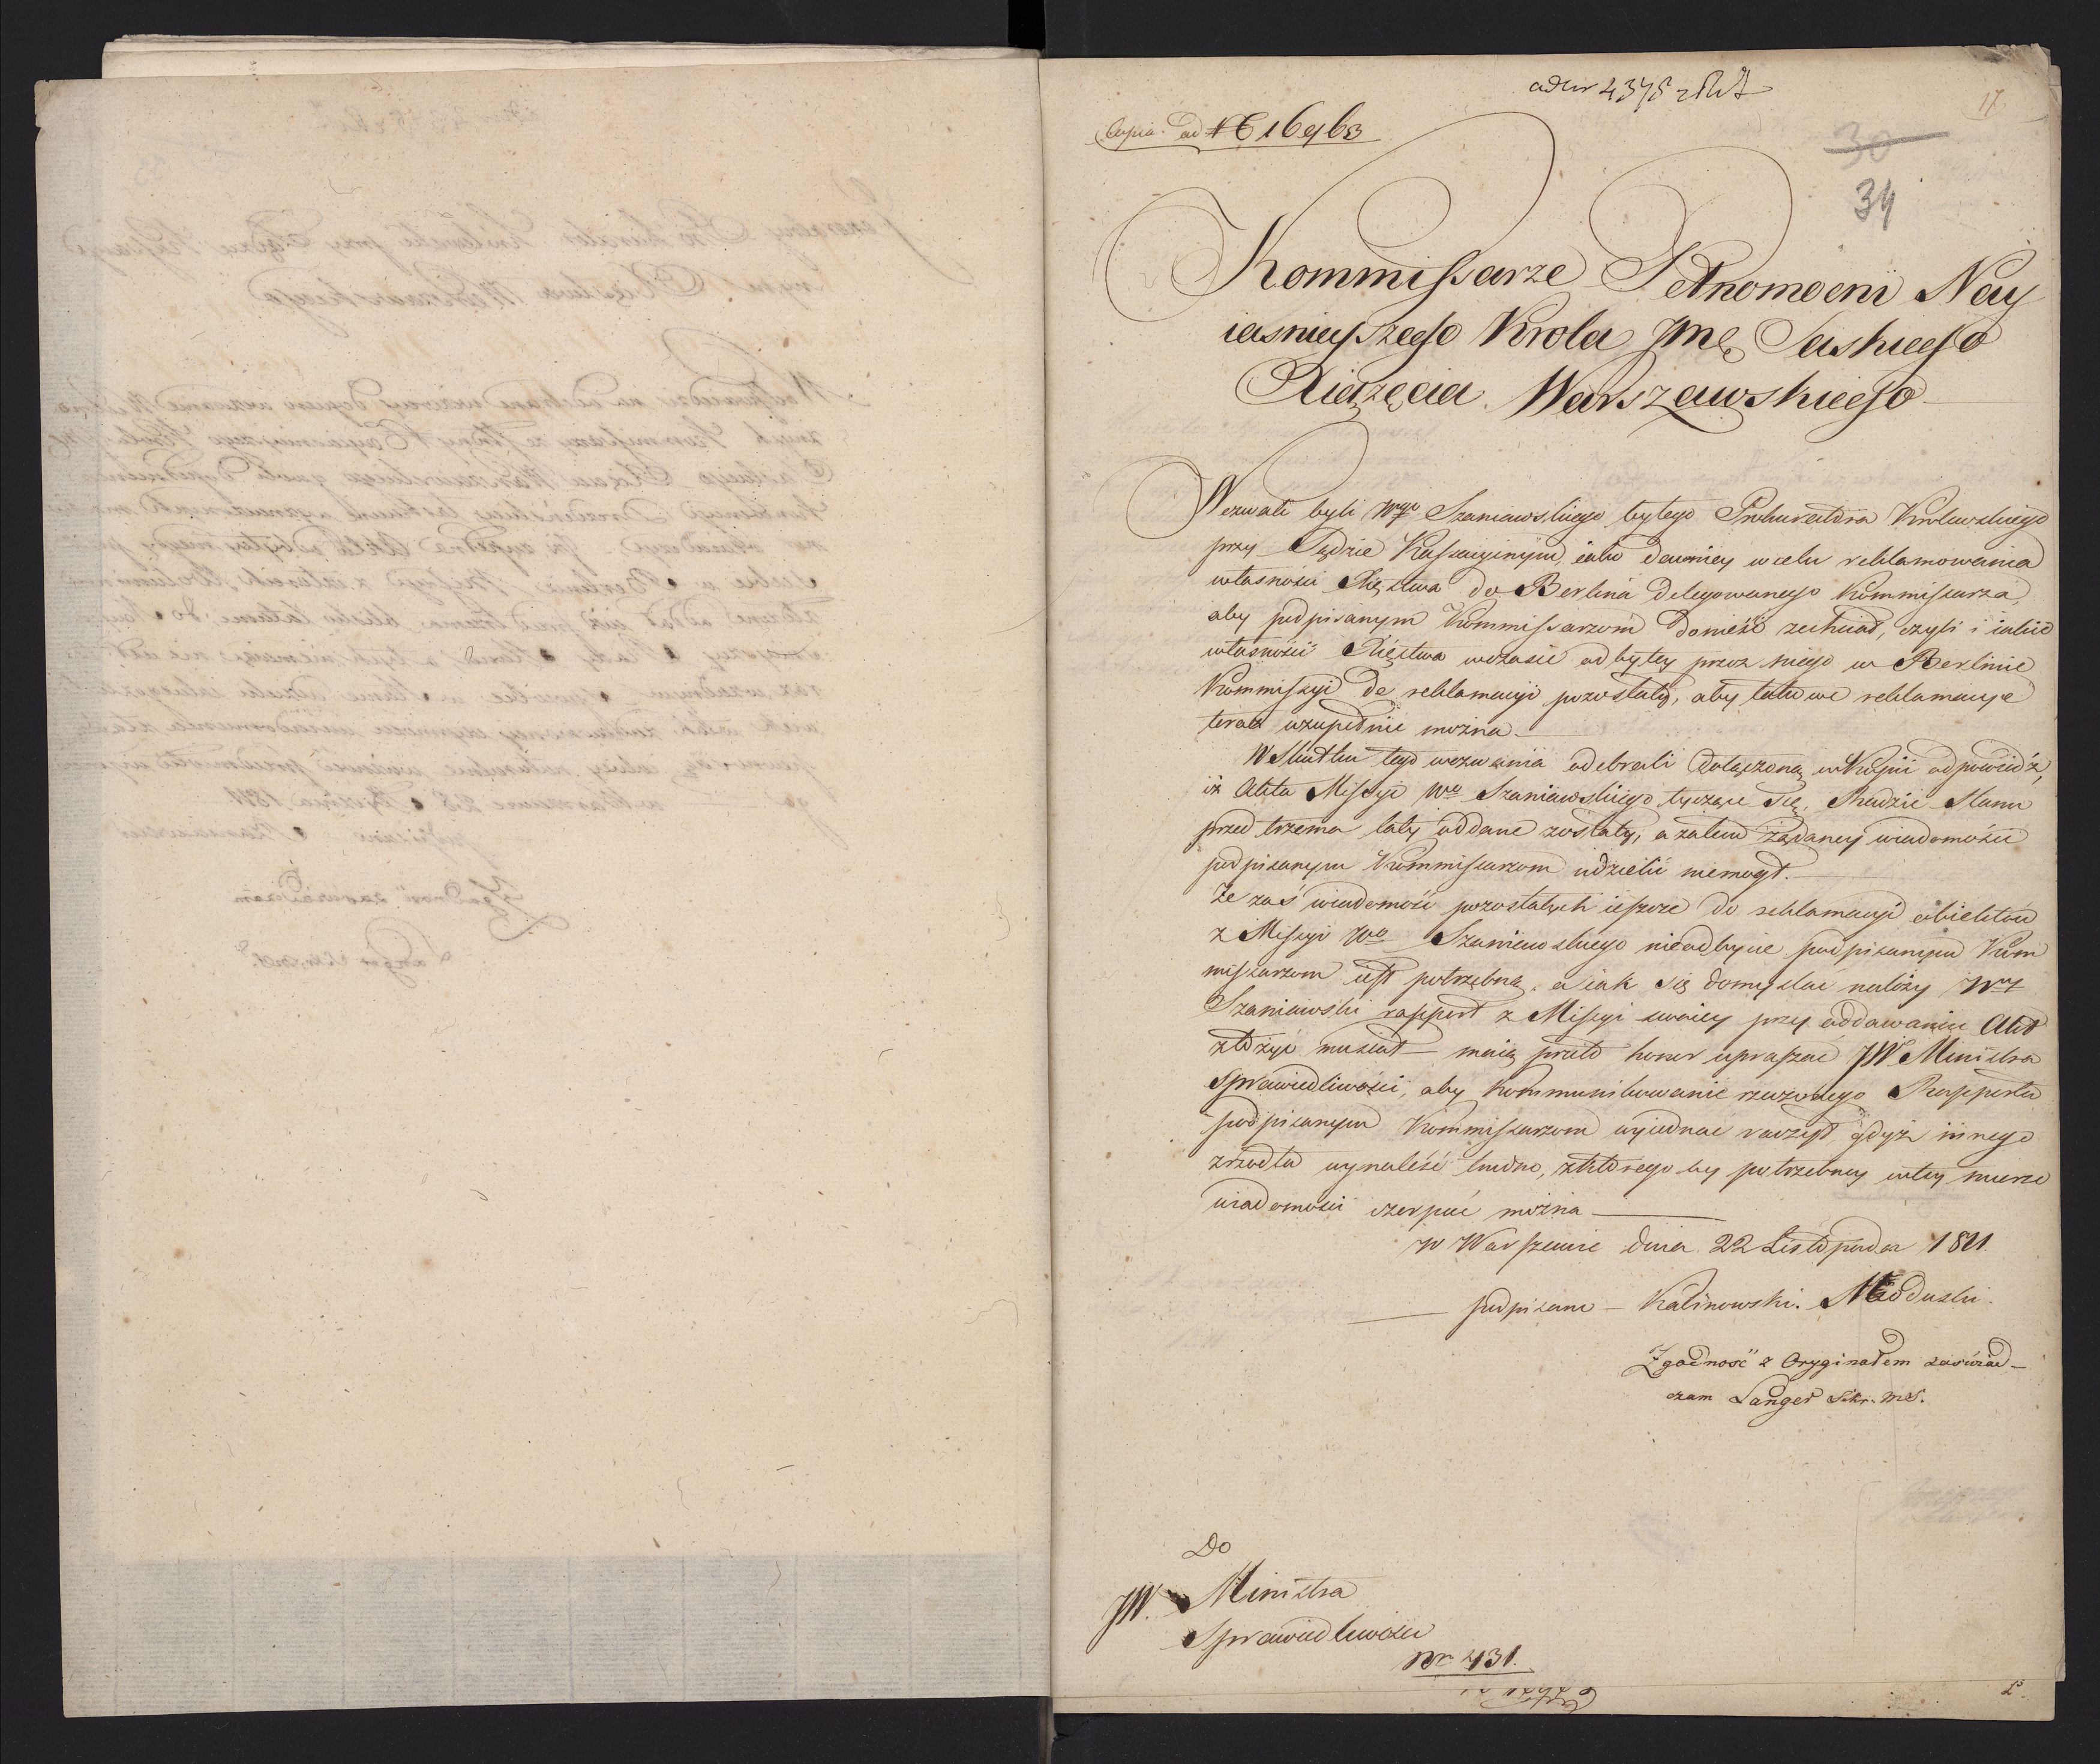 ad nr 4375
17
Copia. ad N 16963
30
34
Kommissarze Pełnomocni Nay
iasnieyszego Krola Jmć Saskiego
Xiążęcia Warszawskiego
Wezwali byli Wgo Szaniawskiego byłego Prokuratora Krolewskiego
przy Sądzie Kassacyinym, iako dawniey w celu reklamowania
własności Xięztwa do Berlina delegowanego Kommissarza,
aby podpisanym Kommissarzom donieść zechciał, czyli i iakie
własności Xięstwa w czasie odbytey przez niego w Berlinie
Kommissyi do reklamacyi pozostały, aby takowe reklamacye
teraz uzupełnić można.
W skutku tego wezwania odebrali dołączoną w Kopii odpowiedź,
iż Akta Missyi Wo Szaniawskiego tyczące się, Radzie Stanu
przed trzema laty oddane zostały, a zatem żądaney wiadomości
podpisanym Kommissarzom udzielić niemogł.
Że zaś wiadomość pozostałych ieszcze do reklamacyi obiektow
z Missyi Wo Szaniawskiego nieodbycie podpisanym Kom
missarzom iest potrzebną, a iak się domyslać należy Wny
Szaniawski rapport z Missyi swoiey przy oddawaniu Akt
złożyć musiał — maią przeto honor upraszać JW Ministra
Sprawiedliwości, aby kommunikowanie rzeczonego Rapportu
podpisanym Kommissarzom wyiednać raczył, gdyż innego
zrzodła wynaleść trudno, z ktorego by potrzebney w tey mierze
wiadomości czerpać można
w Warszawie dnia 22 Listopada 1811.
podpisani — Kalinowski. Badduski.
Zgodność z Oryginałem zaświad-
czam Langer Sekr. MS.
Do
JW. Ministra
Sprawiedliwości
Nr 431.